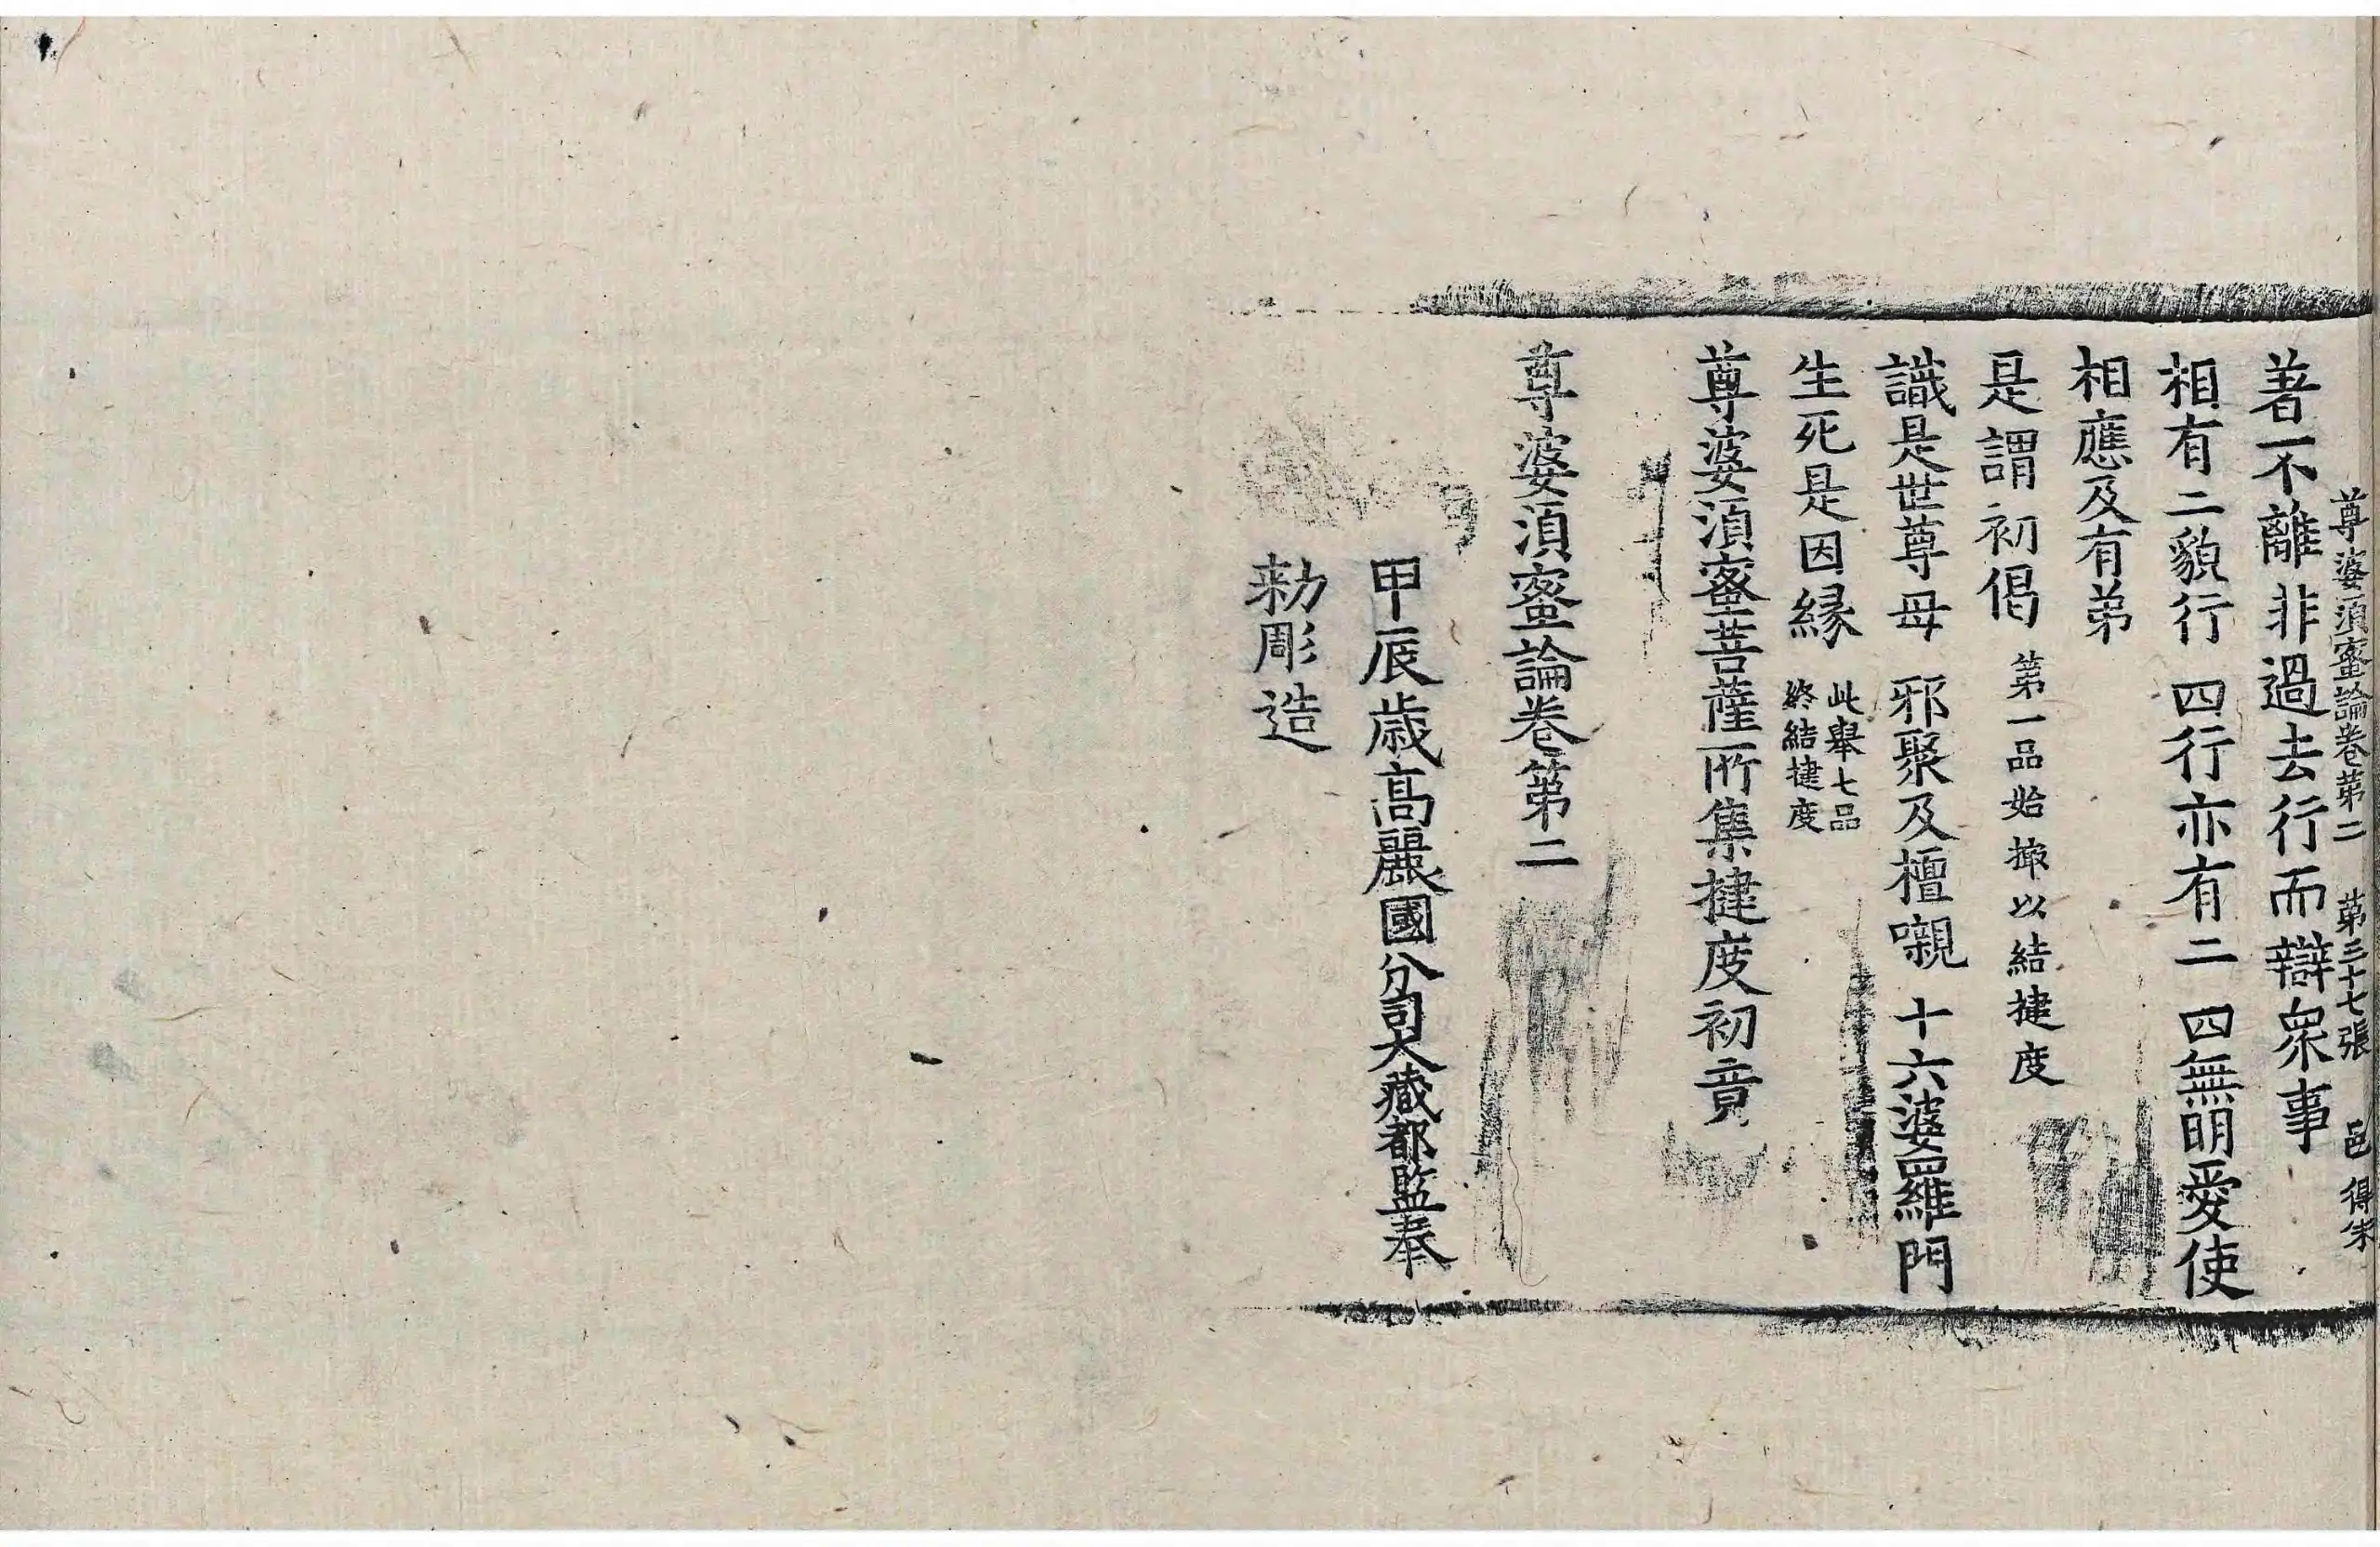 尊婆須蜜論卷第二 第三十七張 邑 得守
著不離非過去行而辯衆事
相有二貌行 四行亦有二 四無明愛使
相應及有弟
是謂初偈 第一品始撽以結揵度
識是世尊母 邪聚及檀嚫 十六婆羅門
生死是因緣 此舉七品
終結揵度
尊婆須蜜菩薩所集揵度初竟
尊婆須蜜論卷第二
甲辰歲高麗國分司大藏都監奉
勅彫造